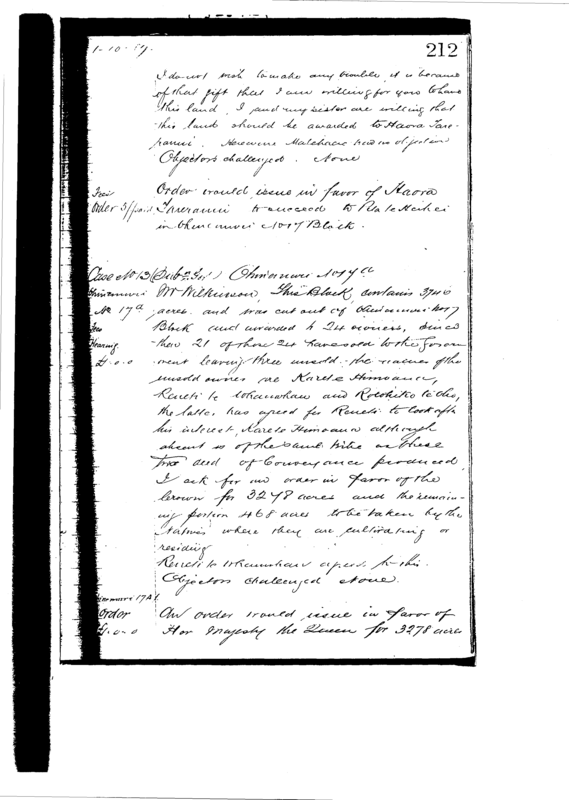 1-10-87.
212
I do not wish to make any trouble it is because
of that gift that I am willing for you to have
this land. I and my sister are willing that
this land should be awarded to Haora Tare-
ranui. had no objection
Objectors challenged. None
Order would issue in favor of Haora
Order 5/ paid Tareranui to succeed to
in Ohinemuri No 17 Block.
Case No 13 (Sub 2 ) Ohinemuri No 17a
Ohinemuri Mr Wilkinson, This Block contains 3746
No 17a acres and was cut out of Ohinemuri No 17
Fee Block and awarded to 24 owners, since
Hearing then 21 of those 24 have sold to the Govern
£1.0.0 ment leaving three unsold. the names of the
unsold owners are Karete Himoana,
Reneti te Whauwhau and
the latter has agreed for Reneti to look after
his interest, Karete Himoana although
absent is of the same tribe as these
two deed of Conveyance produced
I ask for an order in favor of the
Crown for 3278 acres and the remain-
ing portion 468 acres to be taken by the
Natives where they are cultivating or
residing
Reneti te Whauwhau agrees to this.
Objectors challenged None.
Ohinemuri 17A1
Order An order would issue in favor of
£1.0.0 Her Majesty the Queen for 3278 acres